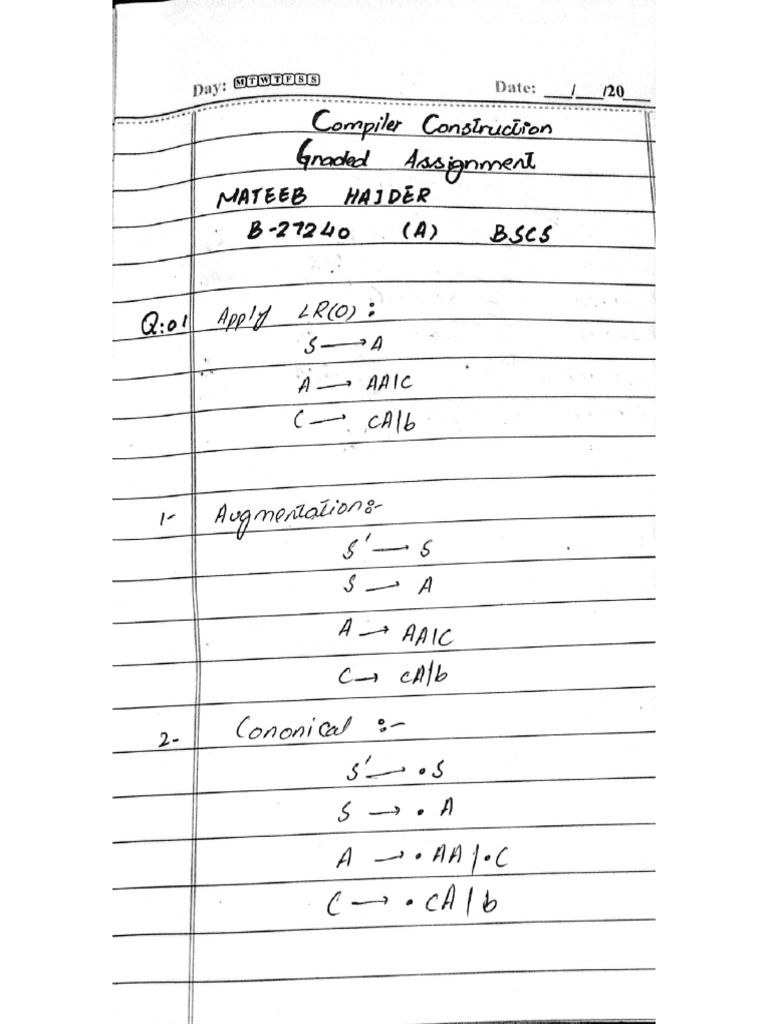 Day: M T W T F S S Date: ___/___/20___
Compiler Construction
Graded Assignment
MATEEB HAIDER
B-27240 (A) BSCS
Q:01 Apply LR(0):
S → A
A → AA|C
C → cA|b
1- Augmentation:-
S' → S
S → A
A → AA|C
C → cA|b
2- Cononical :-
S' → .S
S → .A
A → .AA|.C
C → .cA|b